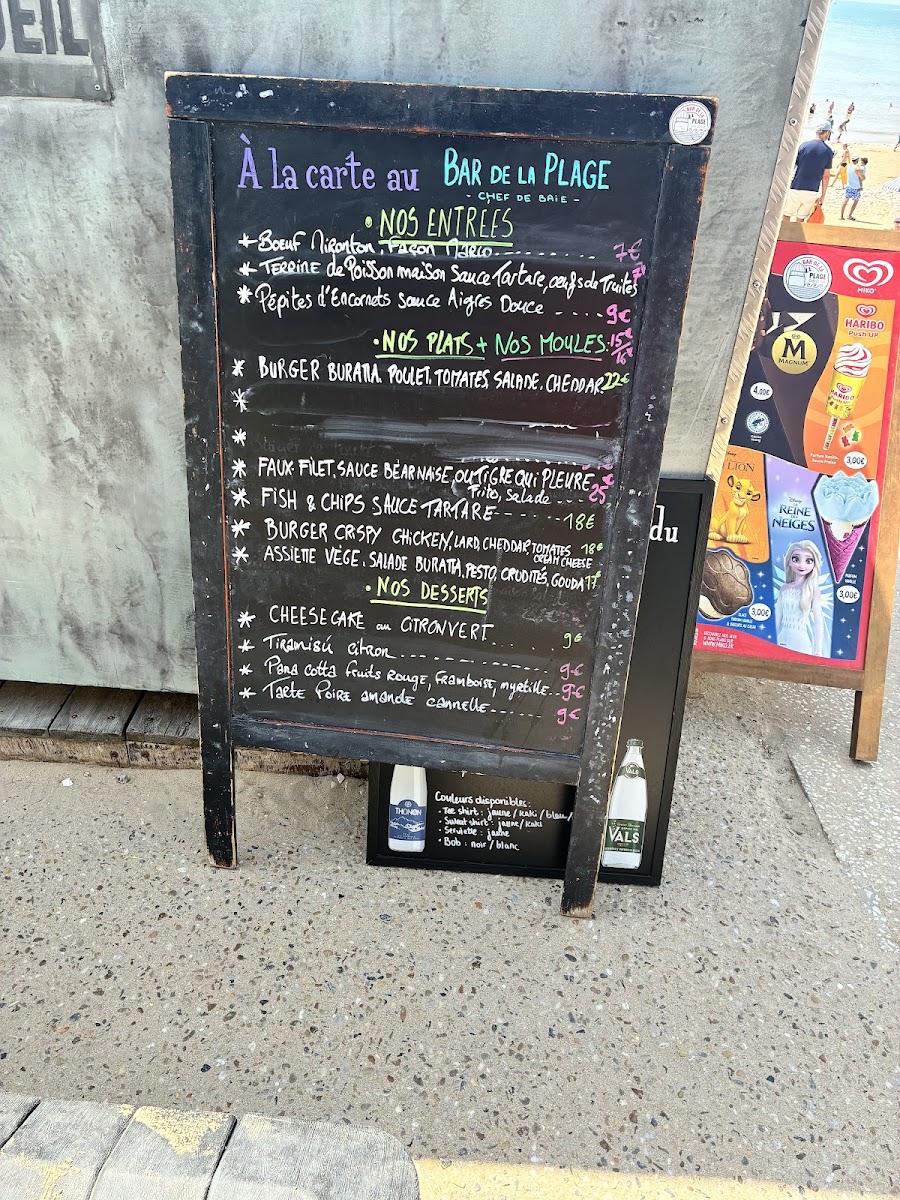 À la carte au BAR DE LA PLAGE
- CHEF DE BAIE -
• NOS ENTREES
* Bœuf Mironton, Façon Marco ........ 7€
* TERRINE de Poisson maison Sauce Tartare, oeufs de Truites 7€
* Pépites d'Encornets sauce Aigres Douce ---- 9€
• NOS PLATS + NOS MOULES. 15€
* BURGER BURATTA, POULET, TOMATES, SALADE, CHEDDAR. 22€
*
*
* FAUX FILET, SAUCE BÉARNAISE, OU TIGRE QUI PLEURE
Frites, Salade ... 25€
* FISH & CHIPS SAUCE TARTARE ------ 18€
* BURGER CRSPY CHICKEN, LARD, CHEDDAR, TOMATES 18€
CREAM CHEESE
* ASSIETTE VÉGÉ, SALADE BURATTA, PESTO, CRUDITÉS, GOUDA 17€
• NOS DESSERTS
* CHEESECAKE au CITRON VERT 9€
* Tiramisú citron ------------ 9€
* Pana cotta fruits Rouge, framboise, myrtille.. 9€
* Tarte Poire amande cannelle ------ 9€
BAR DE LA PLAGE
EIL
du
THONON
Couleurs disponibles :
• Tee shirt : jaune / kaki / bleu /
• Sweat shirt : jaune / kaki
• Serviette : jaune
• Bob : noir / blanc
VALS
VALS
BAR DE LA PLAGE
MIKO
HARIBO
Push UP
M
MAGNUM
4,00€
HARIBO
3,00€
Disney
LION
Disney
REINE DES NEIGES
3,00€
3,00€
WWW.MIKO.FR